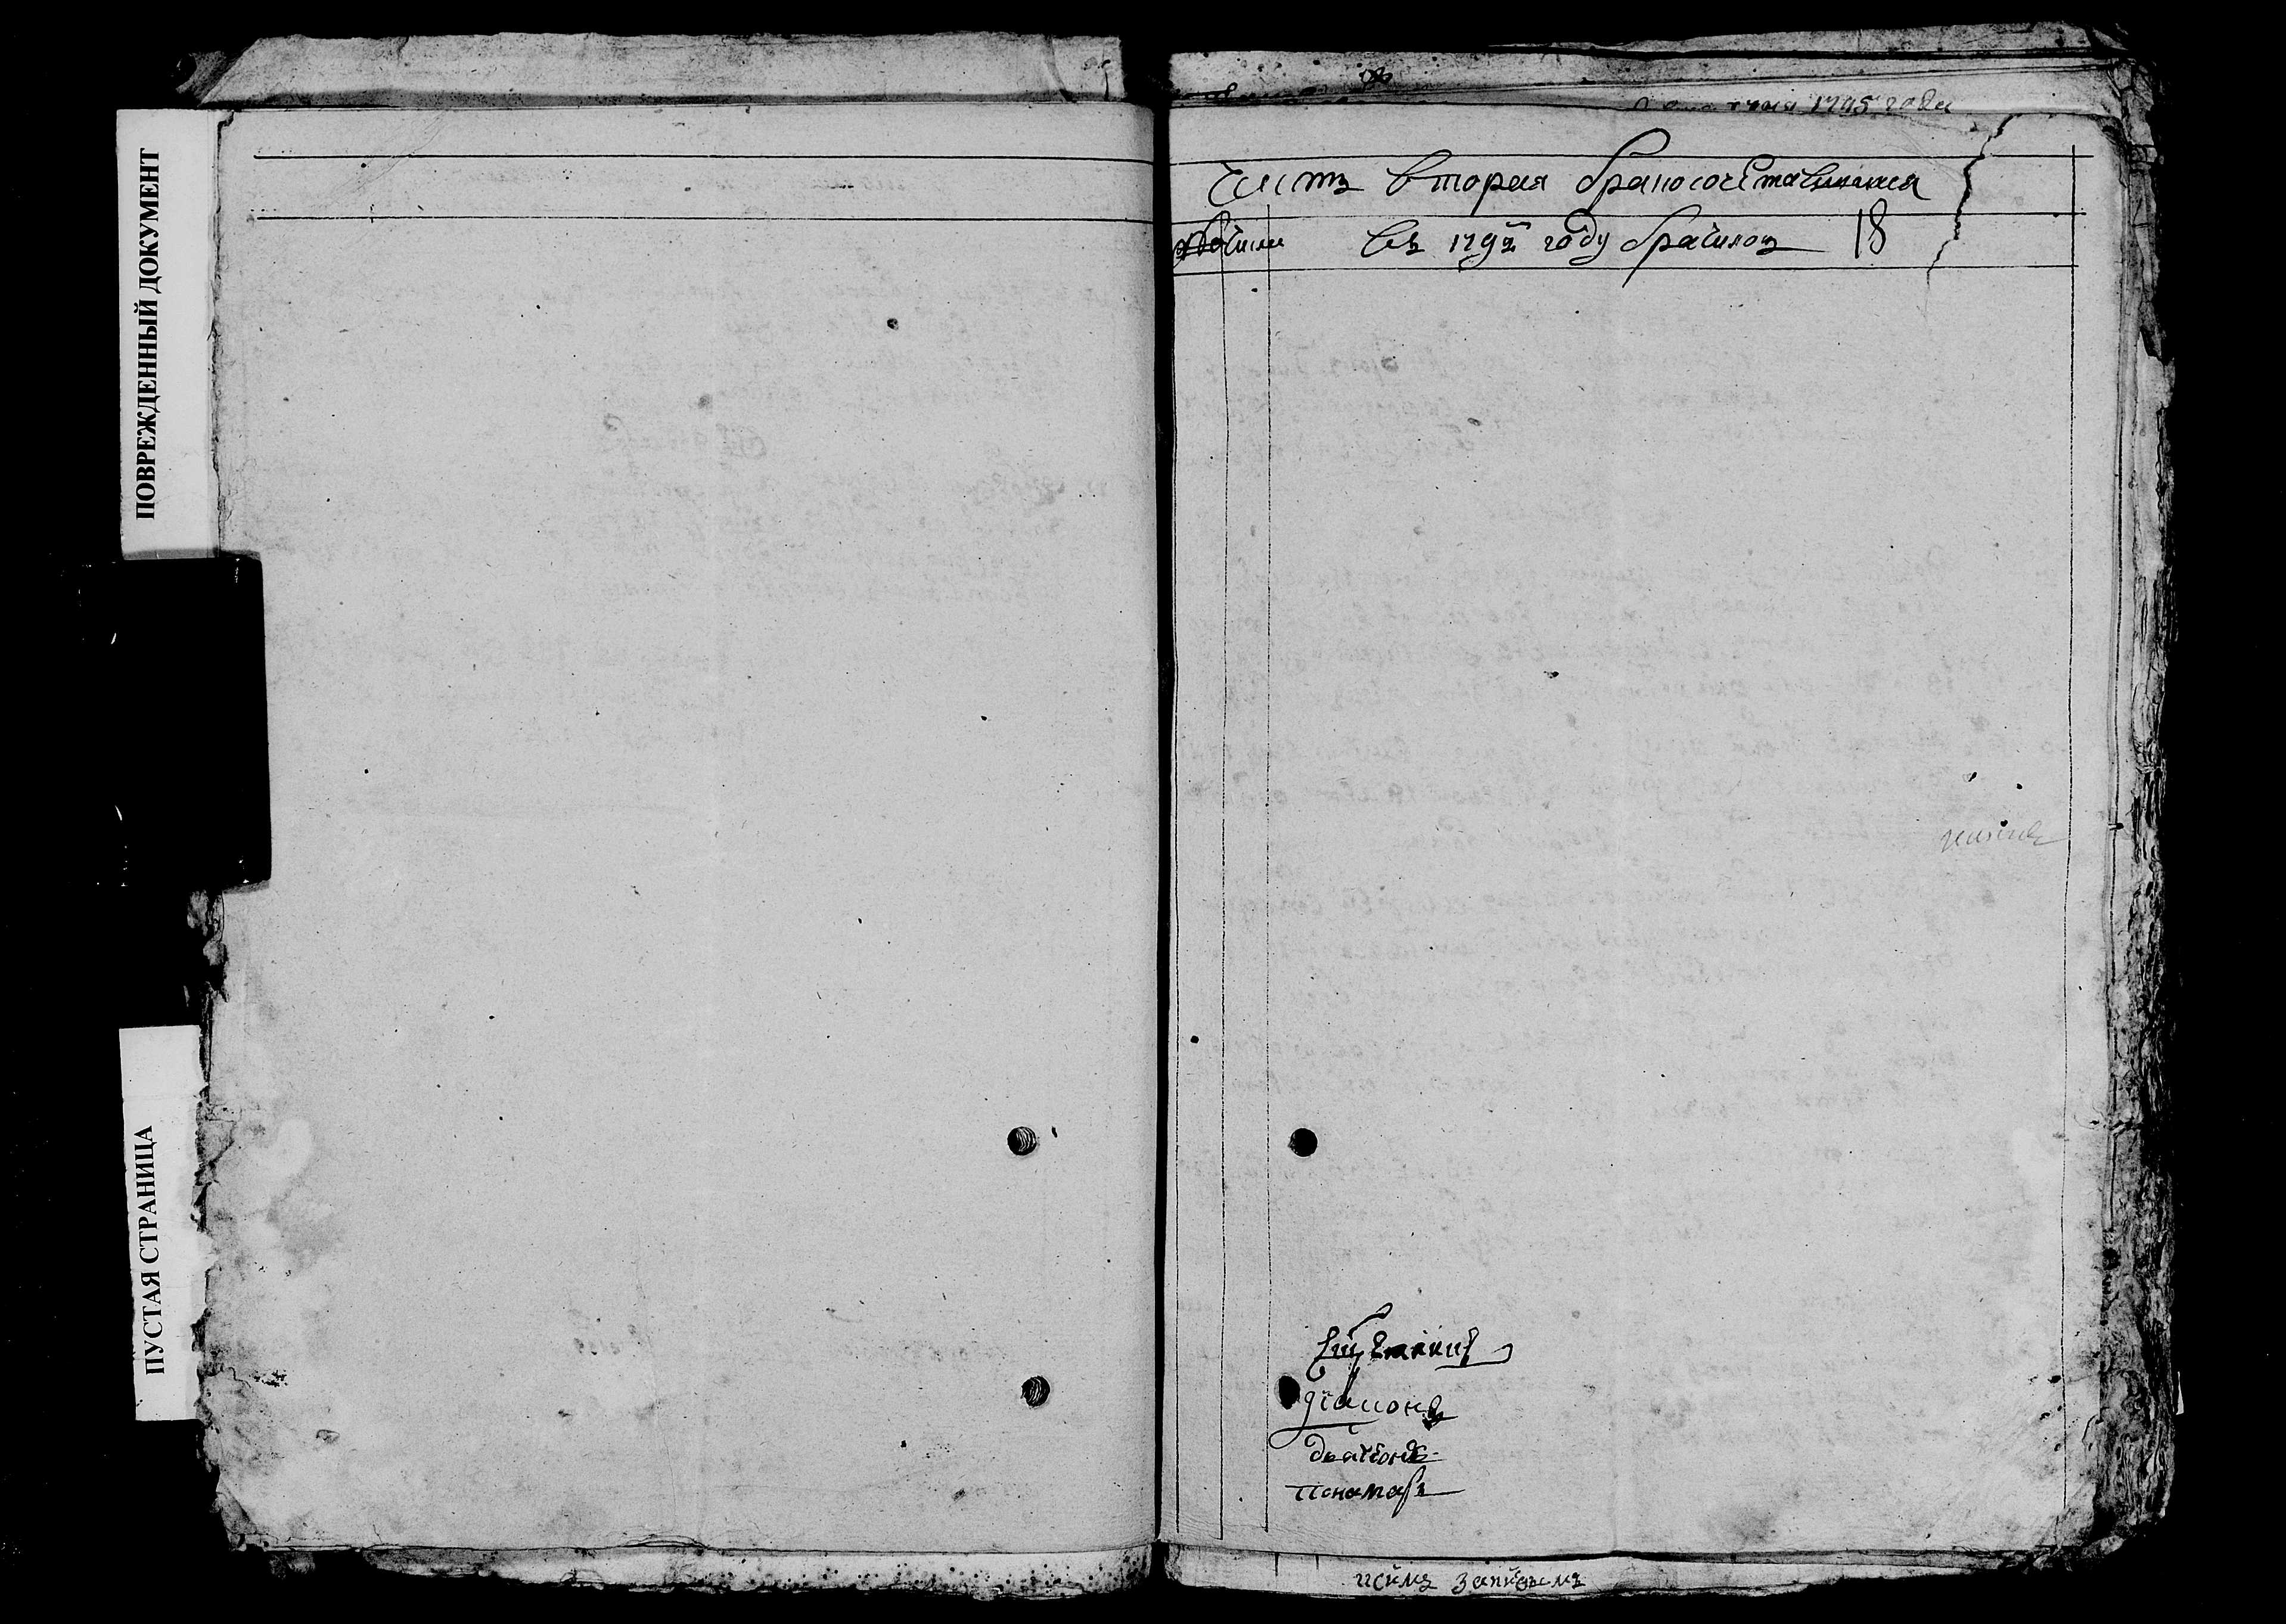 ПОВРЕЖДЕННЫЙ ДОКУМЕНТ
ПУСТАЯ СТРАНИЦА
1795 года
Часть вторая бракосочетавшихся
число въ 179 году браковъ 18
священникъ
диаконъ
дьячокъ
понамарь